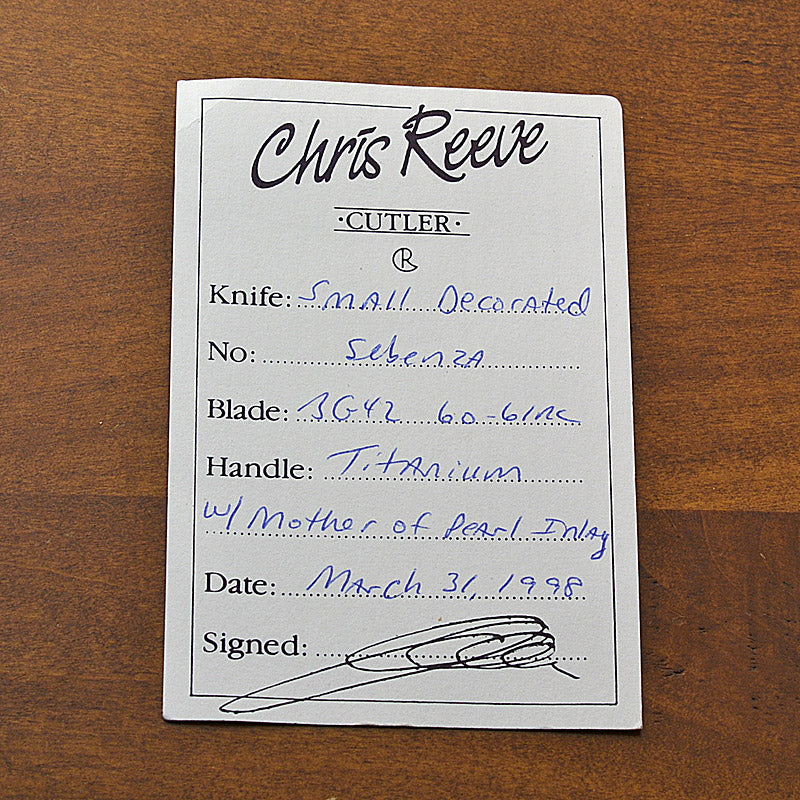 Chris Reeve
·CUTLER·
CR
Knife: Small Decorated
No: Sebenza
Blade: BG42 60-61RC
Handle: Titanium
w/ Mother of Pearl Inlay
Date: March 31, 1998
Signed: